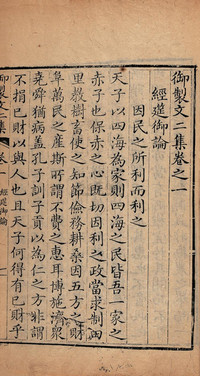 御製文二集卷之一
經筵御論
因民之所利而利之
天子以四海為家則四海之民皆吾一家之
赤子也保赤之心既切因利之政當求制田
里教樹畜使之知節儉務耕桑因五方之財
阜萬民之產斯所謂不費之惠耳博施濟衆
堯舜猶病蓋孔子訓子貢以為仁之方非謂
不捐已財以與人也且天子何得有已財乎
御製文二集
卷一
經筵御論
一